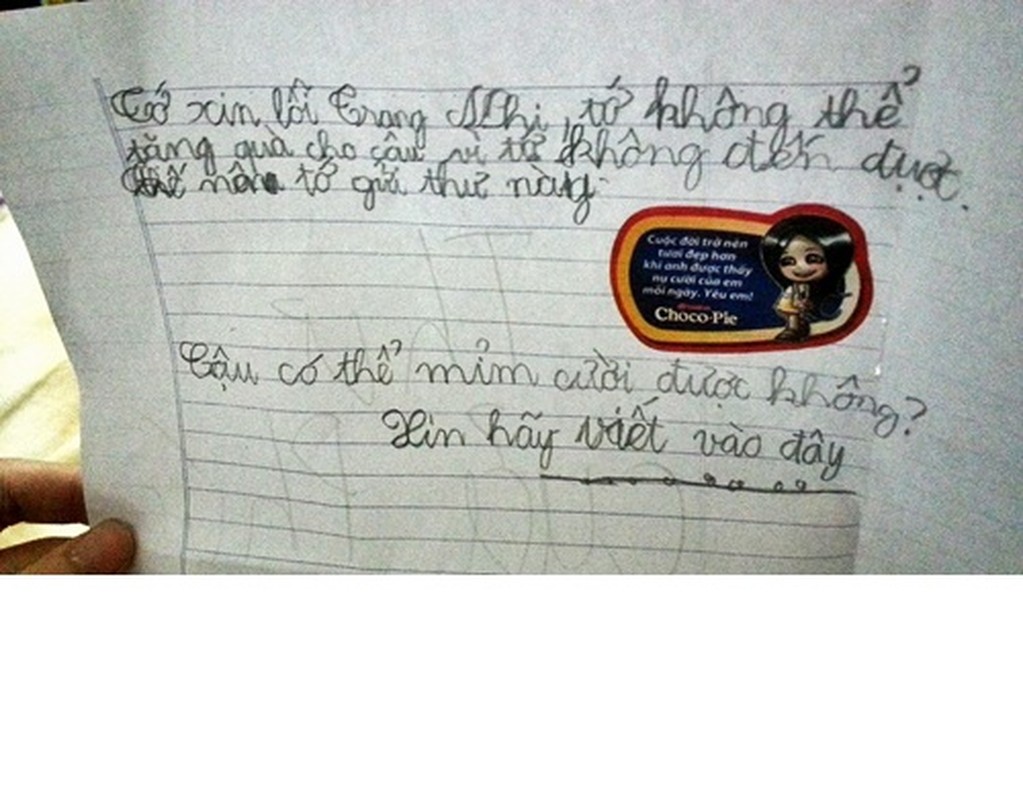 Tớ xin lỗi Trang Nhi, tớ không thể
tăng quà cho cậu vì tớ không đến được.
thế nên tớ gửi thư này.
Cuộc đời trở nên
tươi đẹp hơn
khi anh được thấy
nụ cười của em
mỗi ngày. Yêu em!
Choco-Pie
Cậu có thể mỉm cười được không?
Xin hãy viết vào đây